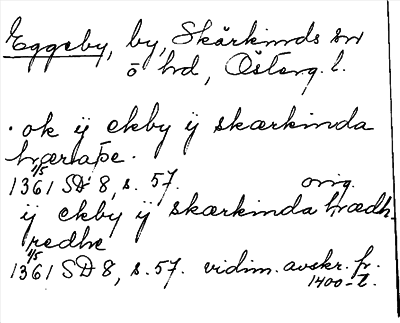 Eggeby, by, Skärkinds sn
ö hd, Österg. l.
. ok ÿ ekby ÿ skærkinda
hæræþe.
1/5
1361 SD 8, s. 57. orig.
ÿ ekby ÿ skærkinda hrædh-
redhe
1/5
1361 SD 8, s. 57. vidim. avskr. fr.
1400-t.